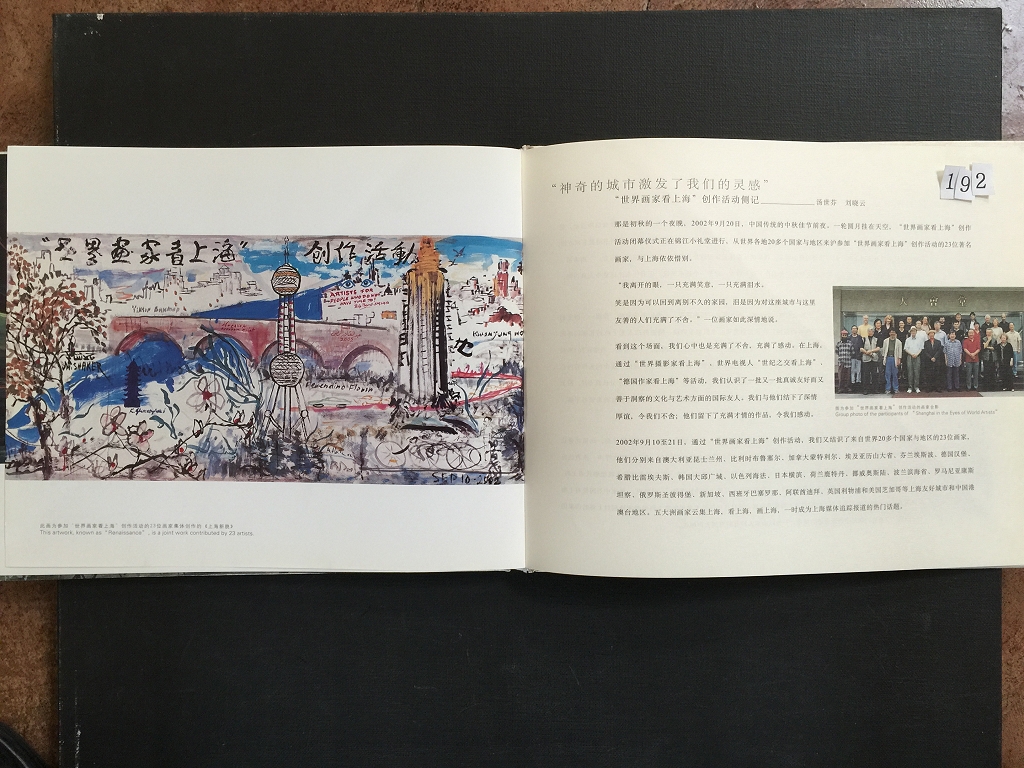 "世界画家看上海"
创作活動
YIMON BANDHU
ARTISTS FOR
PEOPLE AND
SHAKER
Florendino Floria
SEP·10·2002
此画为参加"世界画家看上海"创作活动的23位画家集体创作的《上海新貌》
This artwork, known as "Renaissance", is a joint work contributed by 23 artists.
"神奇的城市激发了我们的灵感"
"世界画家看上海"创作活动侧记__________汤世芬 刘晓云
192
那是初秋的一个夜晚。2002年9月20日，中国传统的中秋佳节前夜。一轮圆月挂在天空。"世界画家看上海"创作
活动闭幕仪式正在锦江小礼堂进行。从世界各地20多个国家与地区来沪参加"世界画家看上海"创作活动的23位著名
画家，与上海依依惜别。
"我离开的眼，一只充满笑意，一只充满泪水。
笑是因为可以回到离别不久的家园，泪是因为对这座城市与这里
友善的人们充满了不舍。"一位画家如此深情地说。
看到这个场面，我们心中也是充满了不舍、充满了感动。在上海，
通过"世界摄影家看上海"、世界电视人"世纪之交看上海"、
"德国作家看上海"等活动，我们认识了一批又一批真诚友好而又
善于洞察的文化与艺术方面的国际友人。我们与他们结下了深情
厚谊，令我们不舍；他们留下了充满才情的作品，令我们感动。
图为参加"世界画家看上海"创作活动的画家合影
Group photo of the participants of "Shanghai in the Eyes of World Artists"
2002年9月10至21日，通过"世界画家看上海"创作活动，我们又结识了来自世界20多个国家与地区的23位画家。
他们分别来自澳大利亚昆士兰州、比利时布鲁塞尔、加拿大蒙特利尔、埃及亚历山大省、芬兰埃斯波、德国汉堡、
希腊比雷埃夫斯、韩国大邱广域、以色列海法、日本横滨、荷兰鹿特丹、挪威奥斯陆、波兰滨海省、罗马尼亚康斯
坦察、俄罗斯圣彼得堡、新加坡、西班牙巴塞罗那、阿联酋迪拜、英国利物浦和美国芝加哥等上海友好城市和中国港
澳台地区。五大洲画家云集上海，看上海、画上海，一时成为上海媒体追踪报道的热门话题。